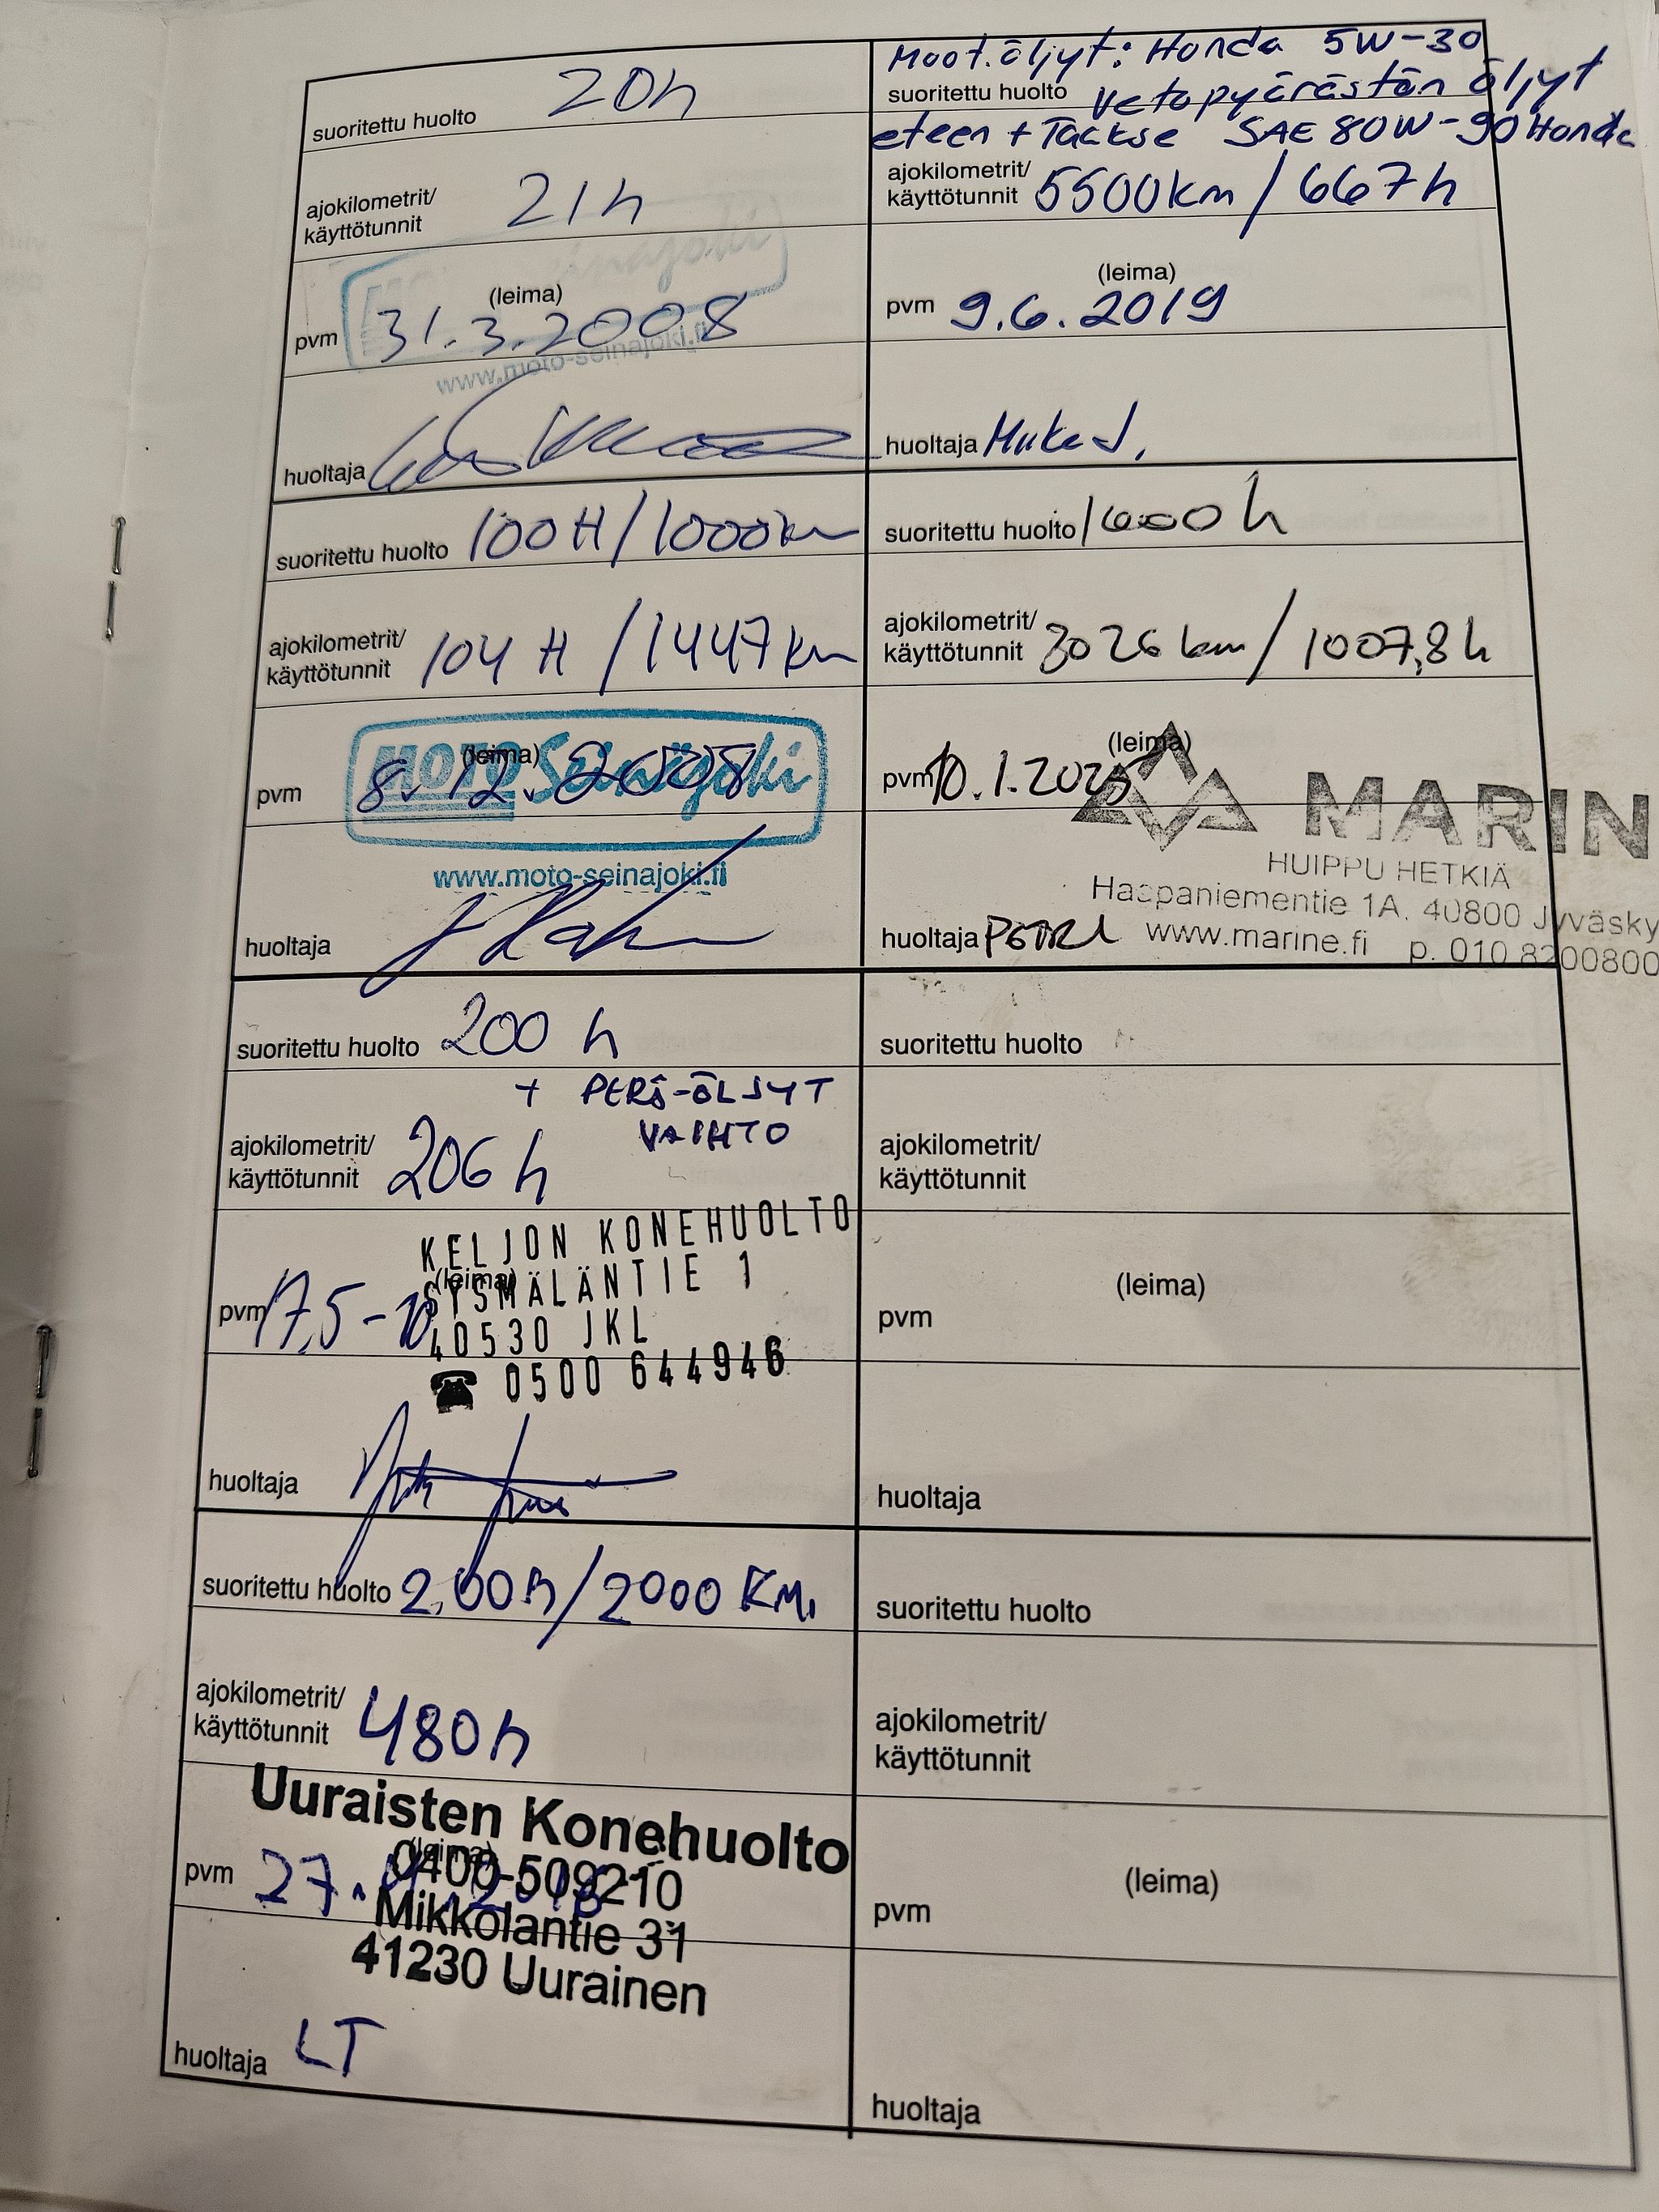 suoritettu huolto 20h
ajokilometrit/
käyttötunnit 21h
Seinajoki
(leima)
pvm 31.3.2008
www.moto-seinajoki.fi
huoltaja
suoritettu huolto 100H/1000km
ajokilometrit/
käyttötunnit 104 H /1447km
MOTO Seinäjoki
(leima)
pvm 8.12.2008
www.moto-seinajoki.fi
huoltaja
suoritettu huolto 200 h
+ PERÄ-ÖLJYT
VAIHTO
ajokilometrit/
käyttötunnit 206 h
KELJON KONEHUOLTO
(leima)
SYSMÄLÄNTIE 1
pvm 17,5-10
40530 JKL
☎ 0500 644946
huoltaja
suoritettu huolto 2,00h/2000 KM.
ajokilometrit/
käyttötunnit 480h
Uuraisten Konehuolto
(leima)
0400-509210
pvm 27.
Mikkolantie 31
41230 Uurainen
huoltaja LT
Moot.öljyt: Honda 5W-30
suoritettu huolto Vetopyörästön öljyt
eteen + Taakse SAE 80W-90 Honda
ajokilometrit/
käyttötunnit 5500km / 667h
(leima)
pvm 9.6.2019
huoltaja
suoritettu huolto
ajokilometrit/
käyttötunnit 8026 km / 1007,8h
(leima)
pvm 10.1.2025
MARIN
HUIPPU HETKIÄ
Haapaniementie 1A. 40800 Jyväsky
huoltaja PETRI www.marine.fi p. 010 8200800
suoritettu huolto
ajokilometrit/
käyttötunnit
(leima)
pvm
huoltaja
suoritettu huolto
ajokilometrit/
käyttötunnit
(leima)
pvm
huoltaja